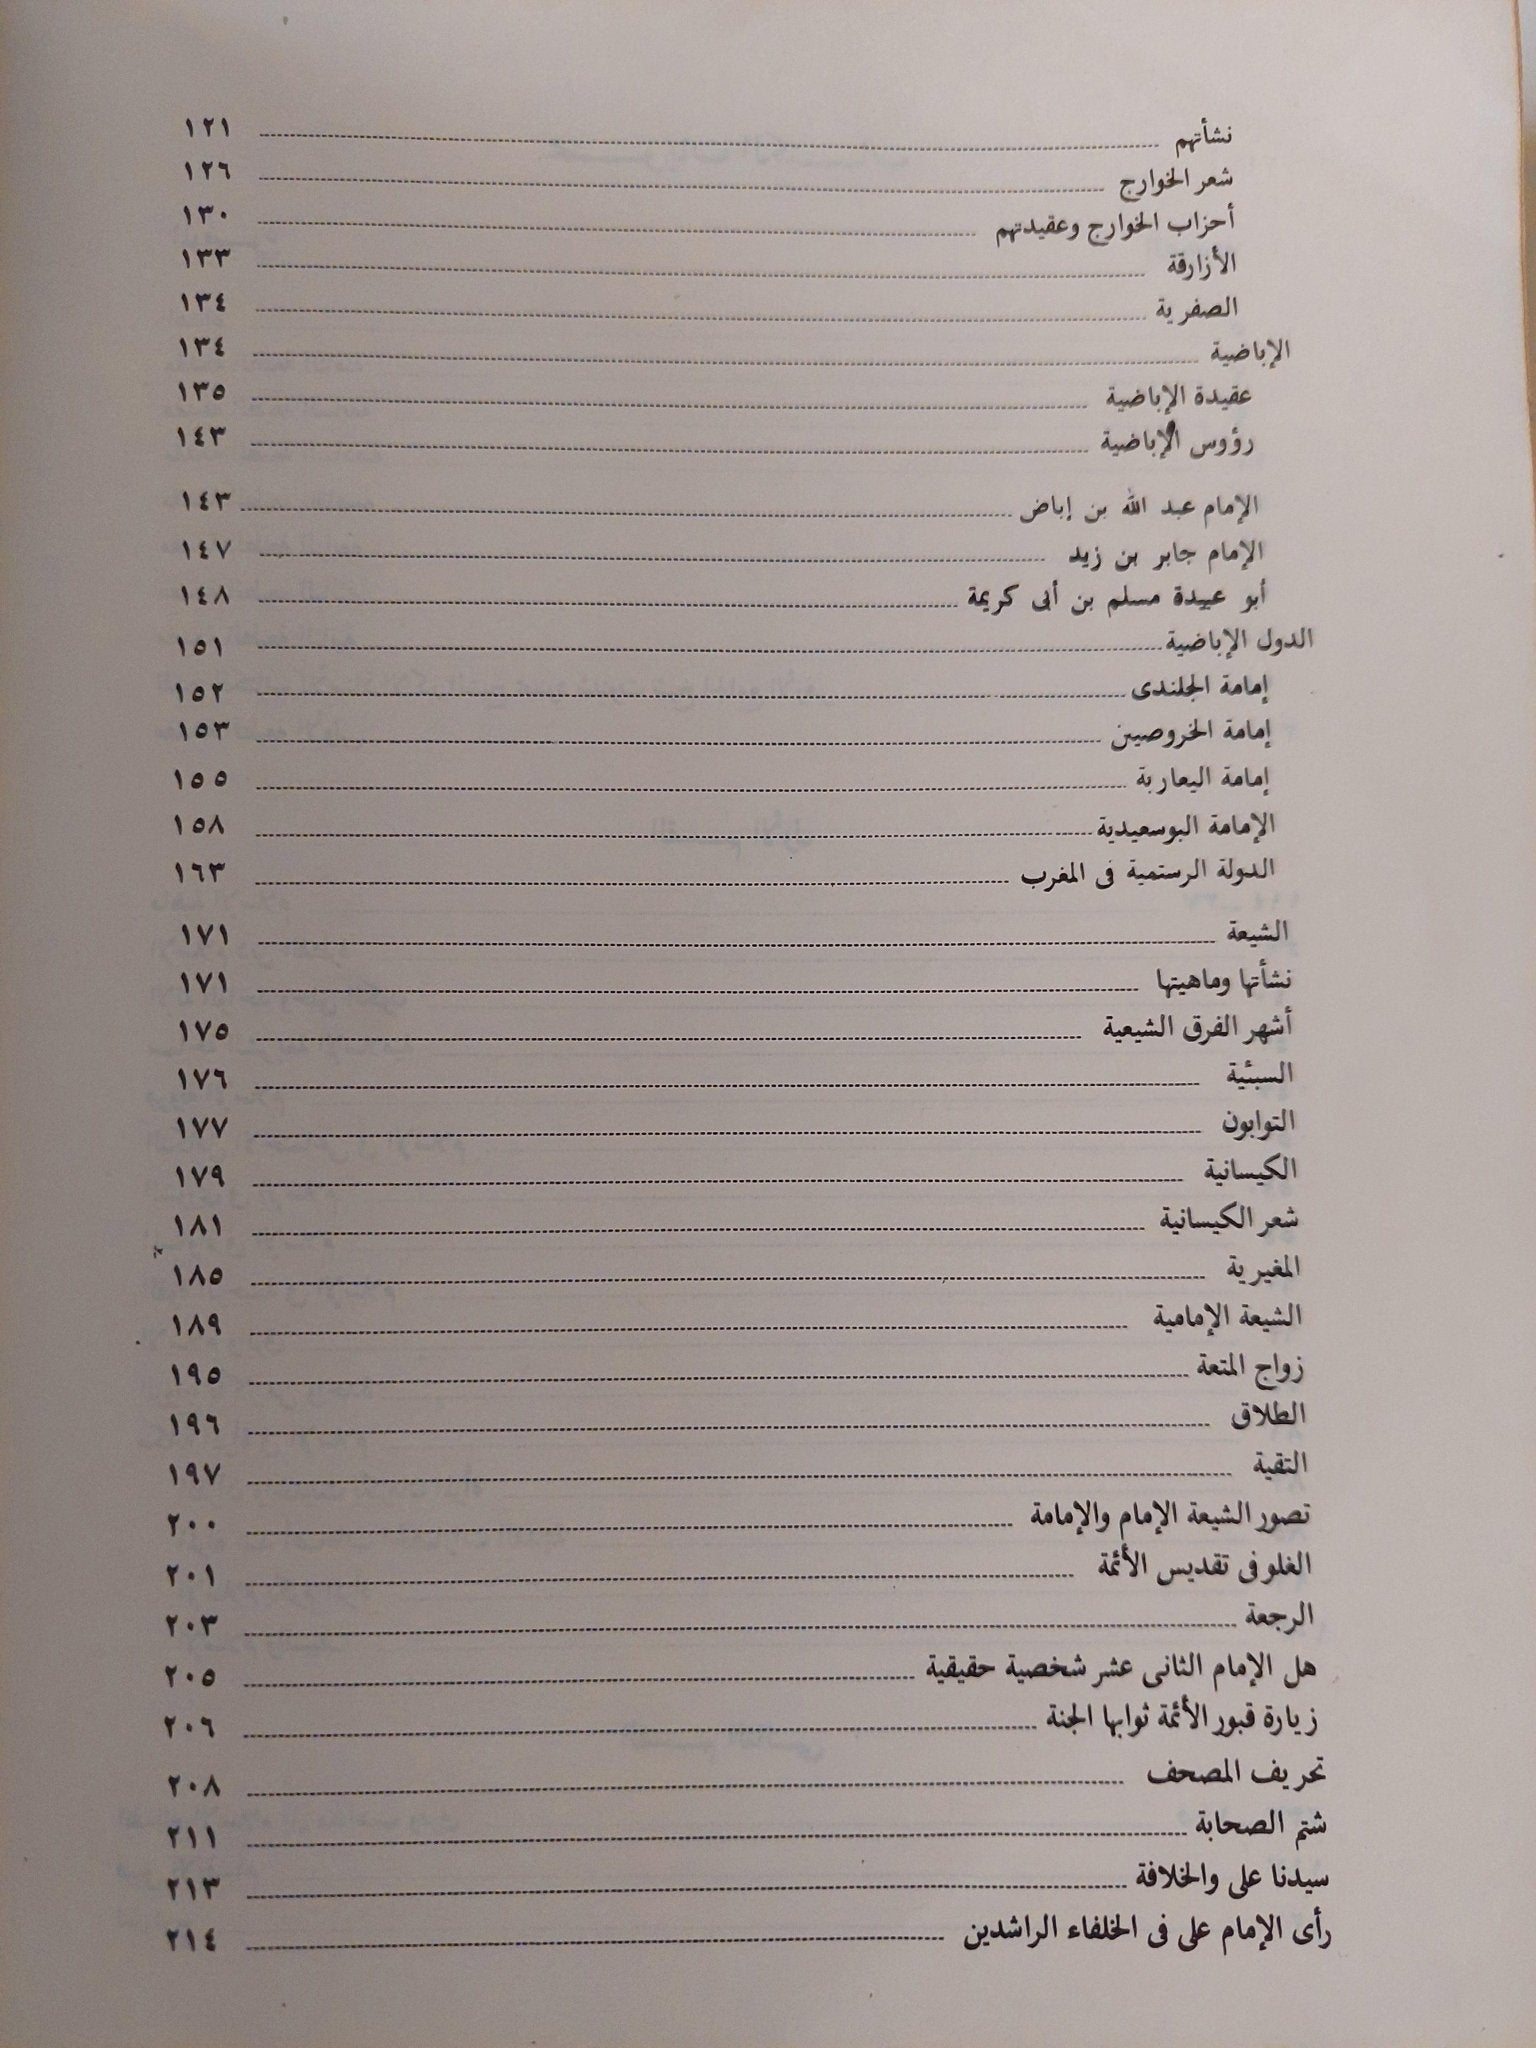 نشأتهم ١٢١
شعر الخوارج ١٢٦
أحزاب الخوارج وعقيدتهم ١٣٠
الأزارقة ١٣٣
الصفرية ١٣٤
الإباضية ١٣٤
عقيدة الإباضية ١٣٥
رؤوس الإباضية ١٤٣
الإمام عبد الله بن إباض ١٤٣
الإمام جابر بن زيد ١٤٧
أبو عبيدة مسلم بن أبى كريمة ١٤٨
الدول الإباضية ١٥١
إمامة الجلندى ١٥٢
إمامة الخروصيين ١٥٣
إمامة اليعاربة ١٥٥
الإمامة البوسعيدية ١٥٨
الدولة الرستمية فى المغرب ١٦٣
الشيعة ١٧١
نشأتها وماهيتها ١٧١
أشهر الفرق الشيعية ١٧٥
السبئية ١٧٦
التوابون ١٧٧
الكيسانية ١٧٩
شعر الكيسانية ١٨١
المغيرية ١٨٥
الشيعة الإمامية ١٨٩
زواج المتعة ١٩٥
الطلاق ١٩٦
التقية ١٩٧
تصور الشيعة الإمام والإمامة ٢٠٠
الغلو فى تقديس الأئمة ٢٠١
الرجعة ٢٠٣
هل الإمام الثانى عشر شخصية حقيقية ٢٠٥
زيارة قبور الأئمة ثوابها الجنة ٢٠٦
تحريف المصحف ٢٠٨
شتم الصحابة ٢١١
سيدنا على والخلافة ٢١٣
رأى الإمام على فى الخلفاء الراشدين ٢١٤